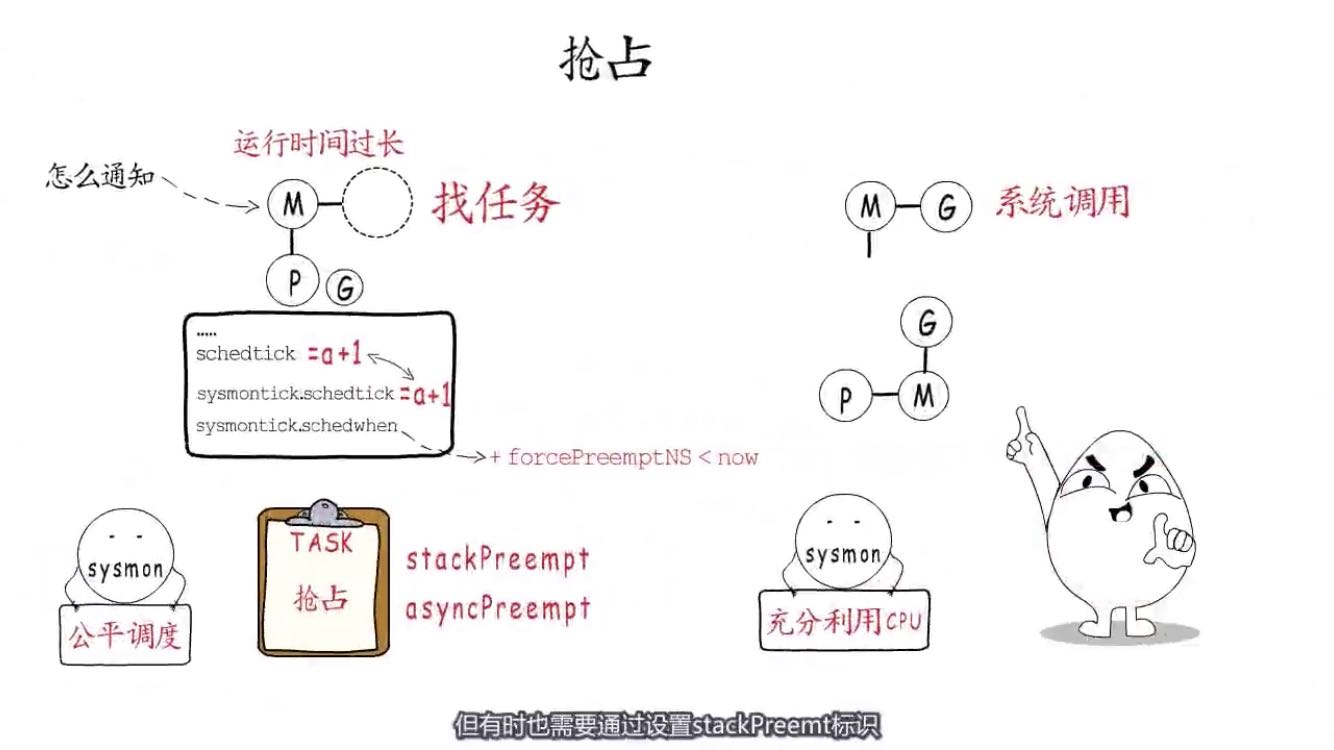 抢占
运行时间过长
怎么通知
M
找任务
P
G
.....
schedtick =a+1
sysmontick.schedtick =a+1
sysmontick.schedwhen
+ forcePreemptNS < now
sysmon
公平调度
TASK
抢占
stackPreempt
asyncPreempt
M
G
系统调用
G
P
M
sysmon
充分利用CPU
但有时也需要通过设置stackPreemt标识